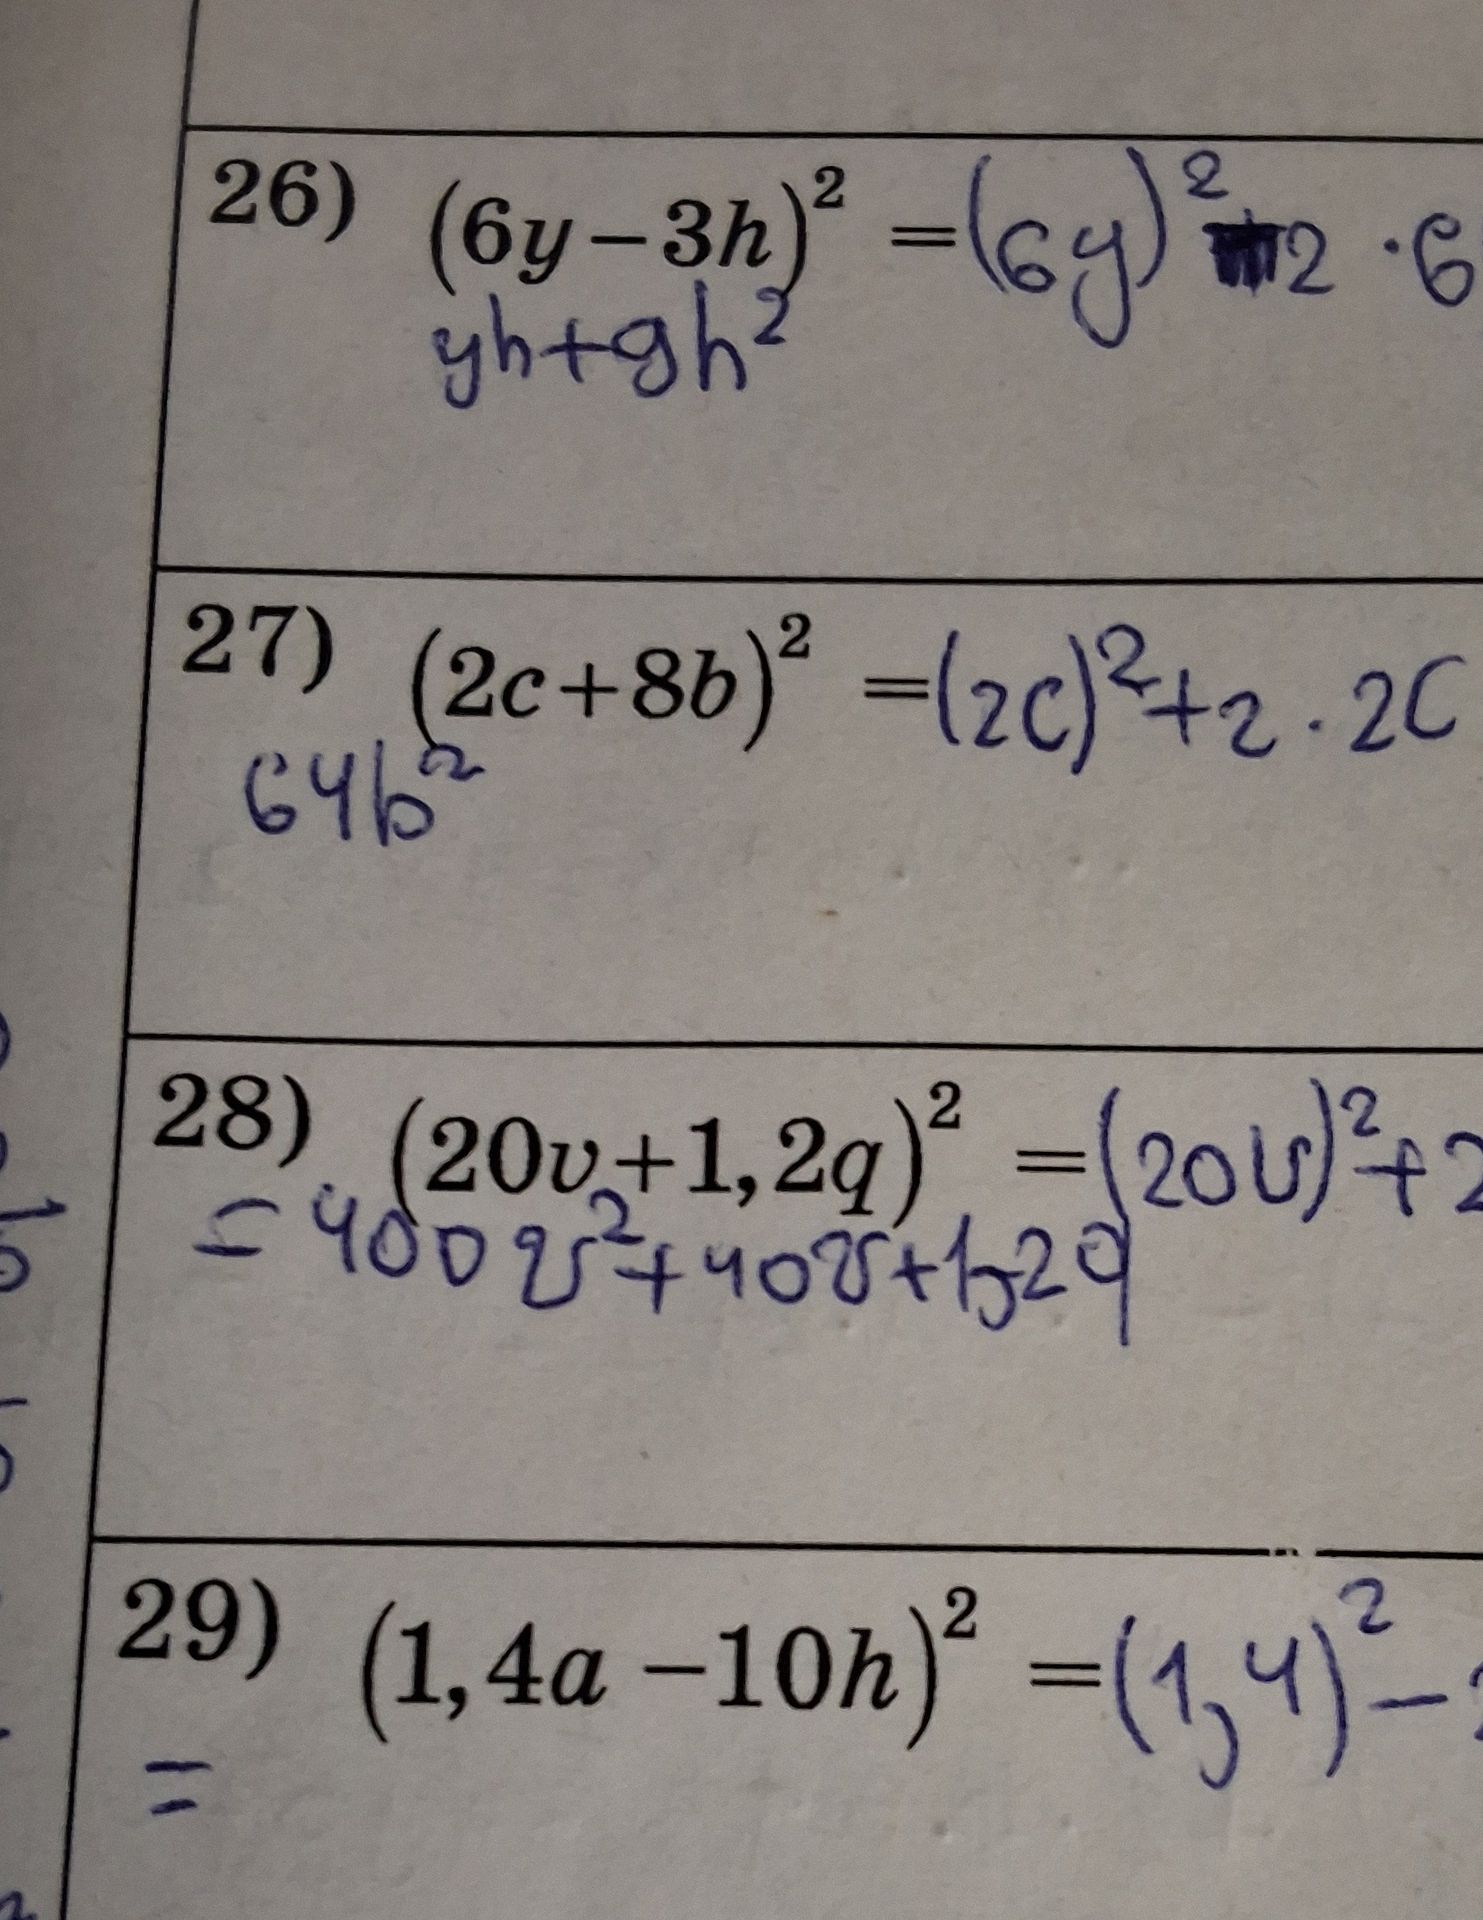 26) (6y−3h)² =(6y)² 2 · 6
yh+9h²
27) (2c+8b)² =(2c)²+2 · 2c
64b²
28) (20v+1,2q)² =(20v)²+2
=400v²+40v+1,2q
29) (1,4a−10h)² =(1,4)²−
=